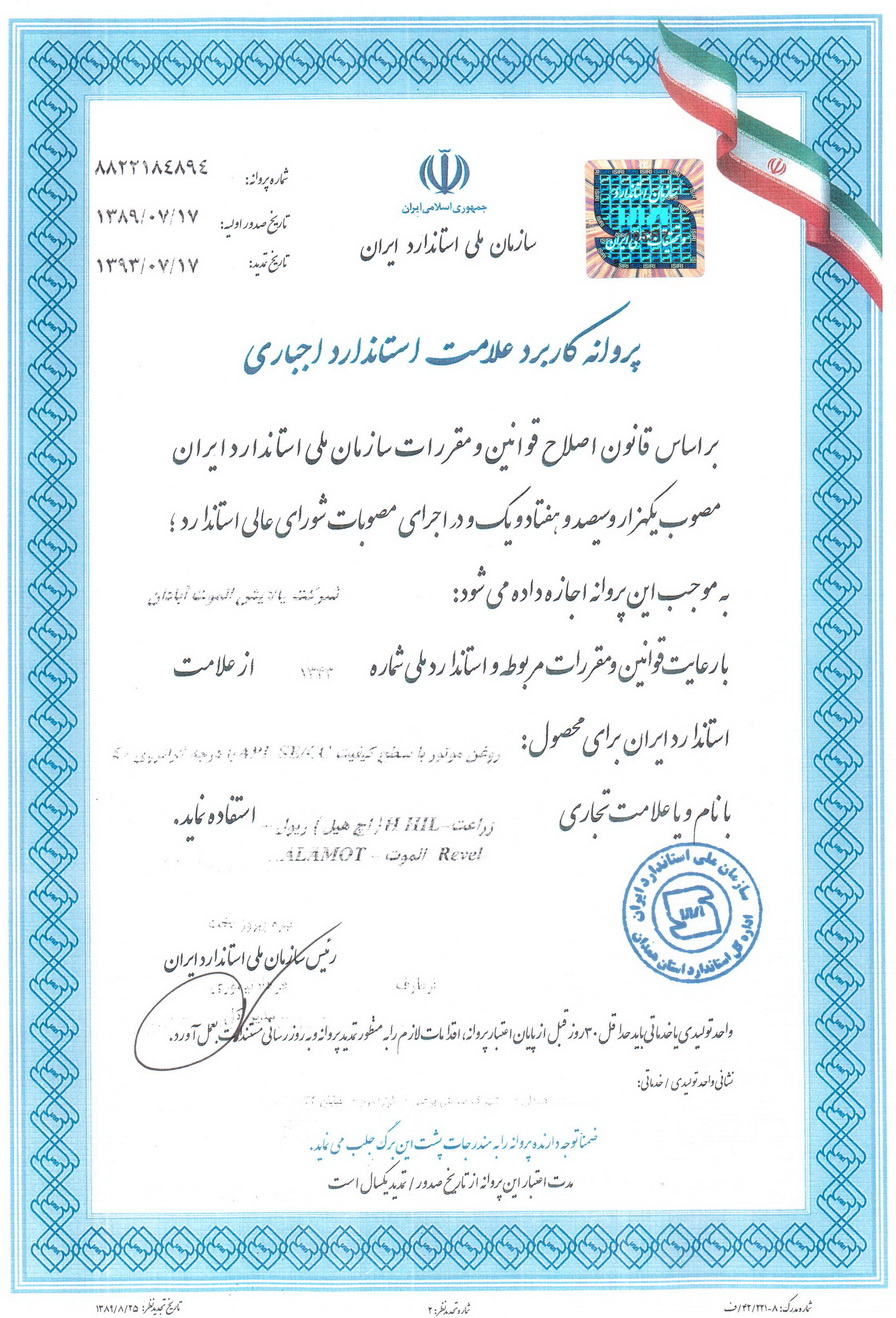 شماره پروانه: ۸۸۲۲۱۸۴۸۹۴
تاریخ صدور اولیه: ۱۳۸۹/۰۷/۱۷
تاریخ تمدید: ۱۳۹۳/۰۷/۱۷
جمهوری اسلامی ایران
سازمان ملی استاندارد ایران
پروانه کاربرد علامت استاندارد اجباری
بر اساس قانون اصلاح قوانین و مقررات سازمان ملی استاندارد ایران
مصوب یکهزار و سیصد و هفتاد و یک و در اجرای مصوبات شورای عالی استاندارد ؛
به موجب این پروانه اجازه داده می شود: شرکت پالایش الموت آبادان
با رعایت قوانین و مقررات مربوطه و استاندارد ملی شماره از علامت
استاندارد ایران برای محصول: روغن موتور با سطح کیفیت API SE/CC با درجه گرانروی
با نام و یا علامت تجاری زراعت-H HIL ( اچ هیل ) ریول - استفاده نماید.
Revel الموت - ALAMOT
سازمان ملی استاندارد ایران
اداره کل استاندارد استان همدان
رئیس سازمان ملی استاندارد ایران
از طرف
واحد تولیدی یا خدماتی باید حداقل ۳۰ روز قبل از پایان اعتبار پروانه، اقدامات لازم را به منظور تمدید پروانه و به روز رسانی مستندات بعمل آورد.
نشانی واحد تولیدی / خدماتی:
ضمنا توجه دارنده پروانه را به مندرجات پشت این برگ جلب می نماید.
مدت اعتبار این پروانه از تاریخ صدور / تمدید یکسال است
شماره مدرک: ۸-۴۲/۲۲۱/ف
شماره تجدیدنظر: ۲
تاریخ تجدیدنظر: ۱۳۸۹/۸/۲۵